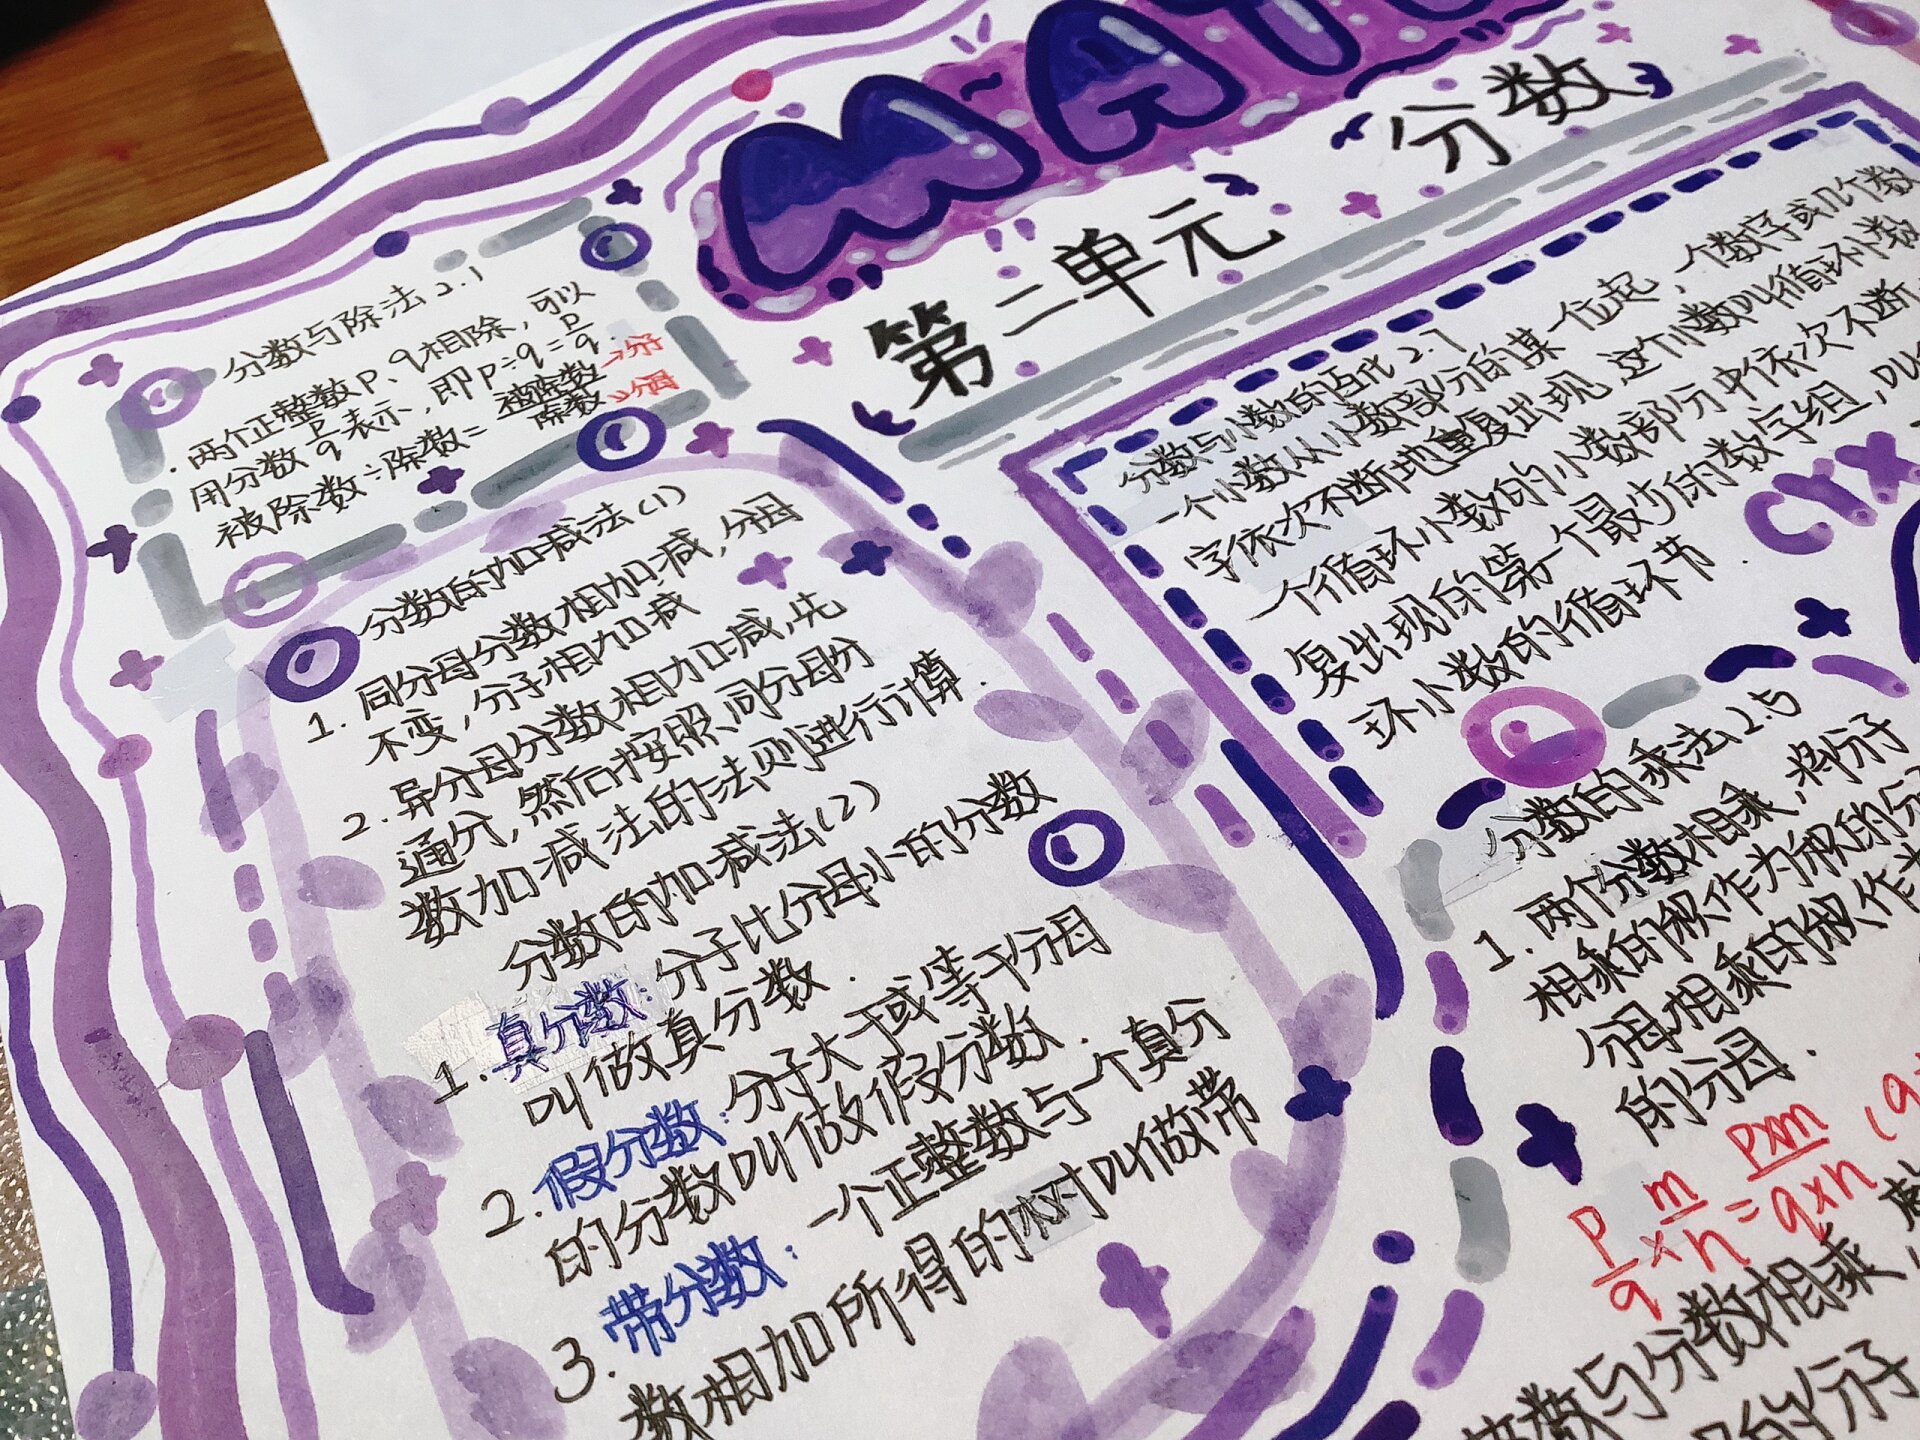 MAT
第二单元 分数
分数与除法2.1
.两个正整数P、q相除,可以
用分数p/q表示,即P÷q=p/q.
被除数÷除数=被除数/除数 →分子 →分母
分数的加减法(1)
1.同分母分数相加减,分母
不变,分子相加减
2.异分母分数相加减,先
通分,然后按照同分母分
数加减法的法则进行计算.
分数的加减法(2)
1.真分数:分子比分母小的分数
叫做真分数.
2.假分数:分子大于或等于分母
的分数叫做假分数.
3.带分数:一个正整数与一个真分
数相加所得的数叫做带
分数与小数的互化2.7
一个小数从小数部分的某一位起,一个数字或几个数
字依次不断地重复出现,这个小数叫循环小数
一个循环小数的小数部分中依次不断
复出现的第一个最少的数字组,叫
环小数的循环节.
cyx
分数的乘法2.5
1.两个分数相乘,将分子
相乘的积作为积的分
分母相乘的积作为
的分母.
p/q×m/n=p×m/q×n(q
数与分数相乘,
的分子